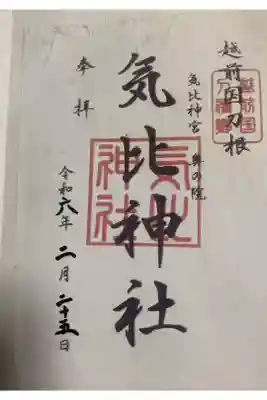 越前国刀根
気比神宮 奥の院
気比神社
奉拝
令和六年二月二十五日
気比神社